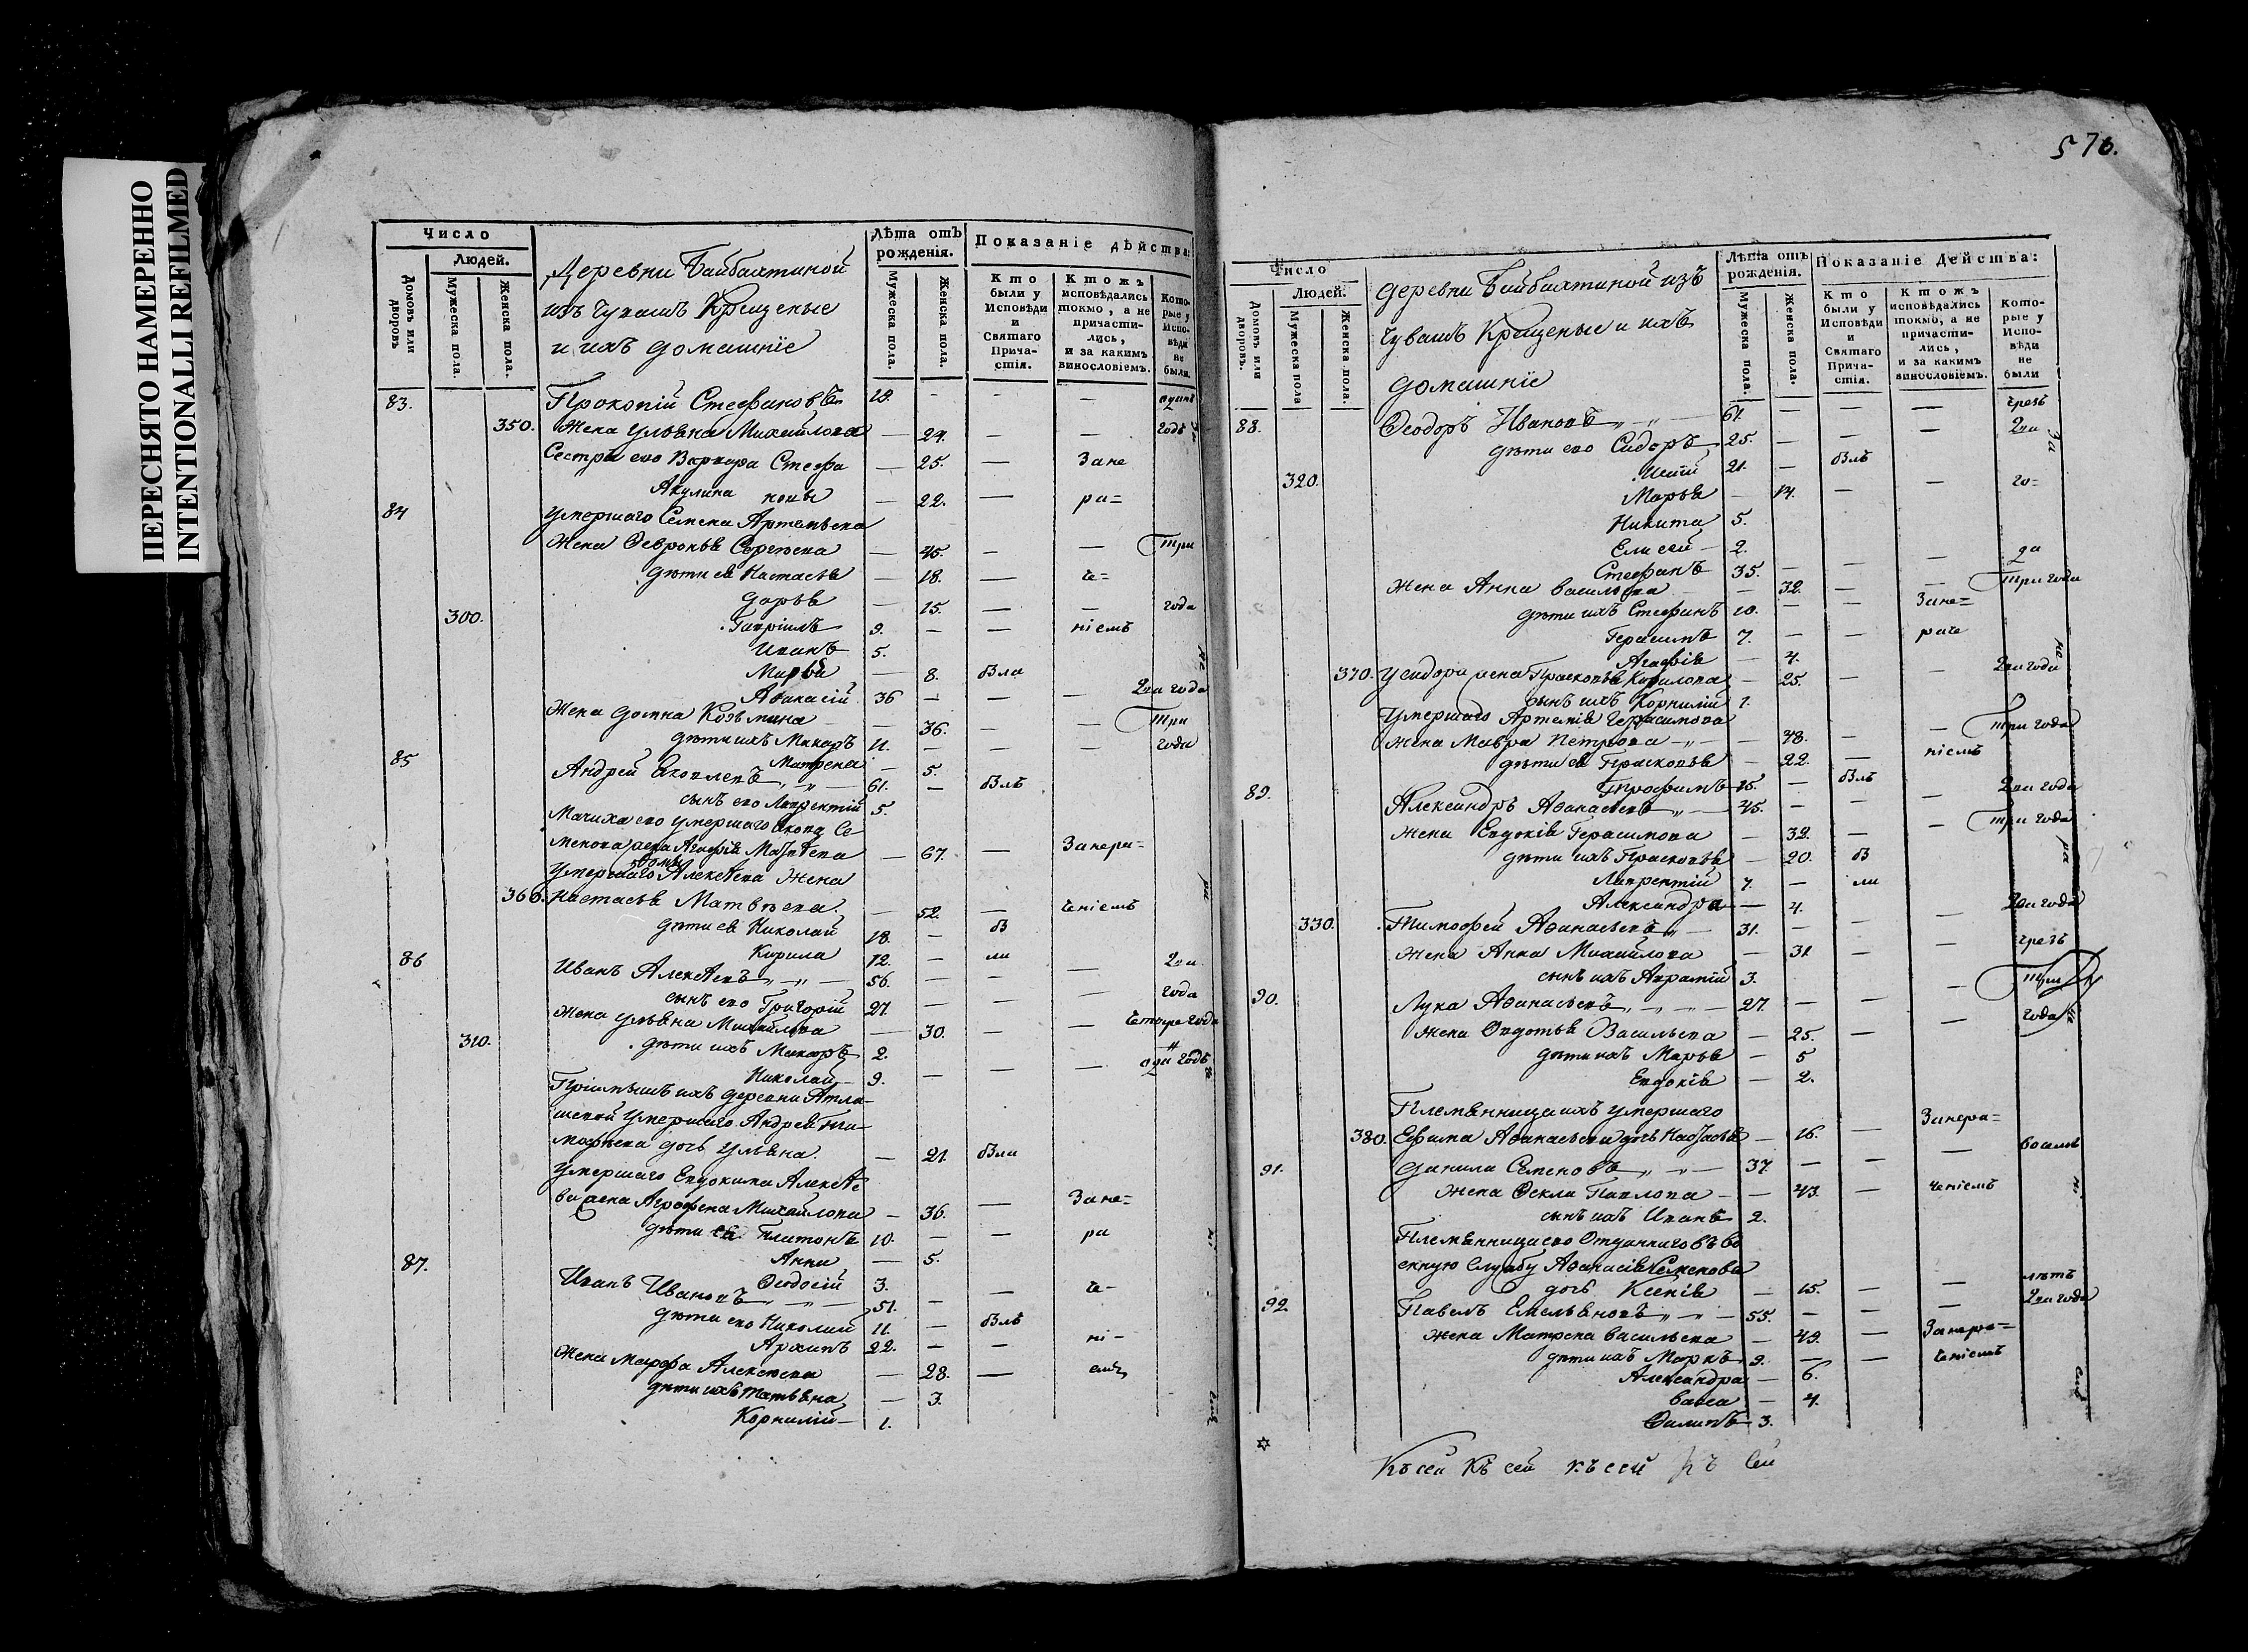 ПЕРЕСНЯТО НАМЕРЕННО
INTENTIONALLI REFILMED
Число
Людей.
Домовъ или дворовъ
Мужеска пола.
Женска пола.
Деревни Байбахтиной
изъ Чувашъ Крещеные
и ихъ домашніе
Лѣта отъ рожденія.
Мужеска пола.
Женска пола.
Показаніе дѣйства:
Кто были у Исповѣди и Святаго Причастія.
Ктожъ исповѣдались токмо, а не причастились, и за какимъ винословіемъ.
Которые у Исповѣди не были.
83. Прокопій Стефановъ 19. — — —
350. Жена Ульяна Михайлова — 24. — — годъ
Сестры его Варвара Стефа — 25. — Зане
Акулина новы — 22. — ра=
84 Умершаго Семена Артемьева
Жена Февронья Сергѣева — 45. — — Три
дѣти ея Настасья — 18. — че=
Дарья — 15. — — года
300. Гавріилъ 9. — — ніемъ
Иванъ 5.
Марья — 8. Была
Аѳанасій 36 — — — Два года
Жена Домна Козьмина — 36. — — Три
дѣти ихъ Макаръ 11. — — — года
Матрена — 5.
85 Андрей Яковлевъ 61. — Былъ
сынъ его Лаврентій 5.
Мачиха его умершаго Якова Се
менова жена Агафія Матвѣева — 67. — Занера=
Умершаго Алексѣева Жена
360. Настасья Матвѣева. — 52. — ченіемъ
дѣти ея Николай 18. — Бы
Кирила 12. — ли
86 Иванъ Алексѣевъ 56. — — — Два
сынъ его Григорій 27. — — — года
Жена Ульяна Михайлова — 30. — — Четыре года
310. дѣти ихъ Макаръ 2.
Николай 9. — — — годъ
Пріимышъ ихъ деревни Атла-
шевой Умершаго Андрея Ти-
мофеева дочь Ульяна. — 21 Была
Умершаго Евдокима Алексѣе
ва жена Аграфена Михайлова — 36. — Зане=
дѣти ея Платонъ 10. — — ра
Анна — 5.
Ѳеодосій 3.
87. Иванъ Ивановъ 51. — — че-
дѣти его Николай 11. — Былъ
Архипъ 22. — — ні-
Жена Марфа Алексѣева — 28. — емъ
дѣти ихъ Татьяна — 3.
Корнилій 1.
576.
Число
Людей.
Домовъ или дворовъ.
Мужеска пола
Женска пола.
деревни Байбахтиной изъ
Чувашъ Крещеные и ихъ
домашніе
Лѣта отъ рожденія.
Мужеска пола.
Женска пола.
Показаніе Действа:
Кто были у Исповѣди и Святаго Причастія.
Ктожъ исповѣдались токмо, а не причастились, и за какимъ винословіемъ.
Которые у Исповѣди не были
88. Ѳеодоръ Ивановъ 61. — — — чрезъ
дѣти его Сидоръ 25. — — — Два
320. 21. — Былъ
Марья — 14. — — го=
Никита 5.
Елисей 2. — да
Стефанъ 35. — —
Жена Анна Васильева — 32. — — Три года
дѣти ихъ Стефанъ 10. — — Зане=
Герасимъ 7. — — раче
Агафія — 4.
370. У Сидора жена Прасковья Кирилова — 25. — — Два года
сынъ ихъ Корнилій 1.
Умершаго Артемія Герасимова
Жена Мавра Петрова — 48. — — Три года
дѣти ея Прасковья — 22. — ніемъ
Трофимъ 15. — Былъ
89. Александръ Аѳанасьевъ 45. — — — Два года
Жена Евдокія Герасимова — 32. — — Три года
дѣти ихъ Прасковья — 20. Бы
Лаврентій 7. — ли
Александра — 4.
330. Тимофей Аѳанасьевъ 31. — — — Два года
Жена Анна Михайлова — 31 — — чрезъ
сынъ ихъ 3.
90. Лука Аѳанасьевъ 27. — — — три
Жена Овдотья Васильева — 25. — — года
дѣти ихъ Марья — 5
Евдокія — 2.
Племянница ихъ умершаго
380. Ефима Аѳанасьева дочь Настасья — 16. — Занера=
91. Данила Семеновъ 37. — — — восемь
Жена Ѳекла Павлова — 43. — ченіемъ
сынъ ихъ Иванъ 2.
Племянница его Отданнаго въ во
енную Службу Аѳанасія Семенова
дочь Ксенія — 15. — — лѣтъ
92. Павелъ Емельяновъ 55. — — — Два года
Жена Матрена Васильева — 49. — Занера=
дѣти ихъ Маркъ 9. — — ченіемъ
Александра — 6.
Васса — 4.
Филипъ 3.
Къ сей Къ сей къ сей къ сей